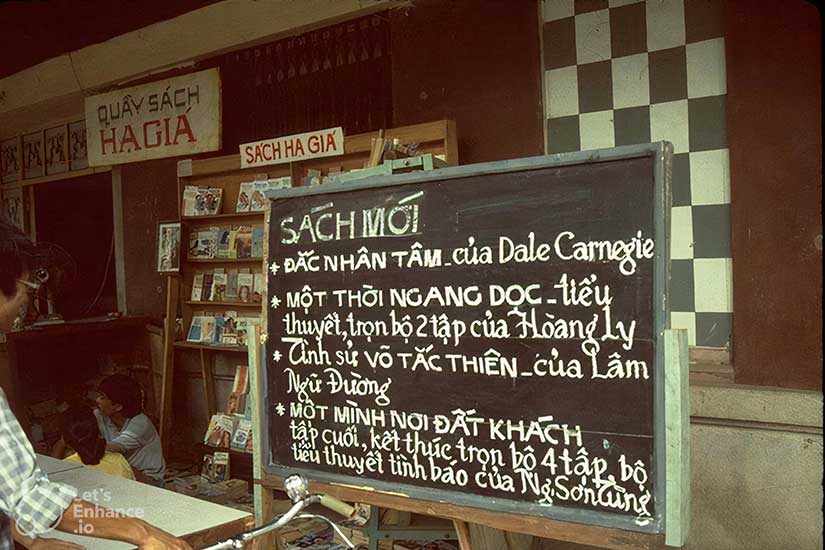 QUẦY SÁCH
HẠ GIÁ
SÁCH HẠ GIÁ
SÁCH MỚI
* ĐẮC NHÂN TÂM - của Dale Carnegie
* MỘT THỜI NGANG DỌC - tiểu
thuyết, trọn bộ 2 tập của Hoàng Ly
* Tình sử VÕ TẮC THIÊN - của Lâm
Ngữ Đường
* MỘT MÌNH NƠI ĐẤT KHÁCH
tập cuối, kết thúc trọn bộ 4 tập bộ
tiểu thuyết tình báo của Ng. Sơn Tùng
Let's
Enhance
.io